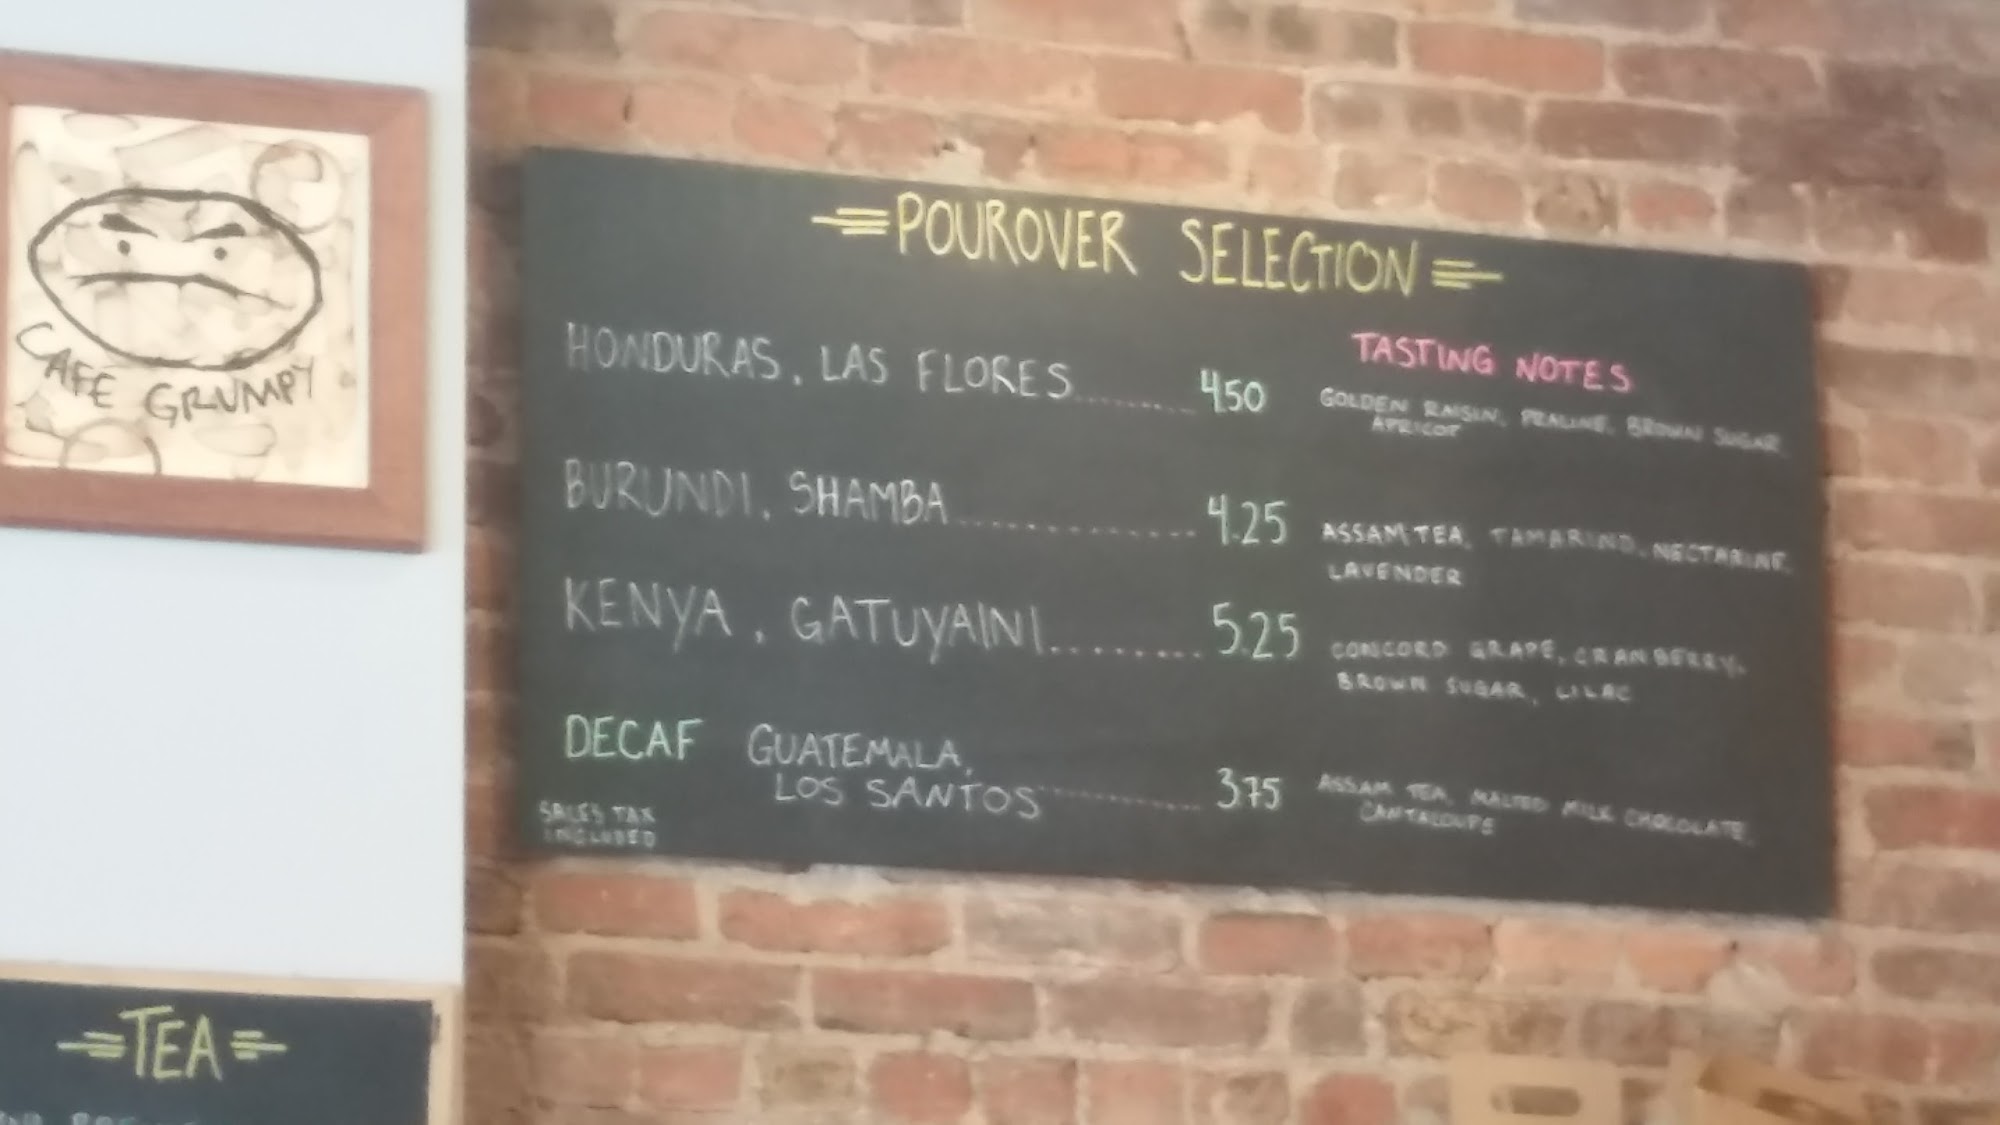 CAFE GRUMPY
POUROVER SELECTION
TASTING NOTES
HONDURAS, LAS FLORES.......... 4.50
GOLDEN RAISIN, PRALINE, BROWN SUGAR,
APRICOT
BURUNDI, SHAMBA.............. 4.25
ASSAM TEA, TAMARIND, NECTARINE,
LAVENDER
KENYA, GATUYAINI........ 5.25
CONCORD GRAPE, CRANBERRY,
BROWN SUGAR, LILAC
DECAF GUATEMALA,
LOS SANTOS.............. 3.75
ASSAM TEA, MALTED MILK CHOCOLATE,
CANTALOUPE
SALES TAX
INCLUDED
TEA